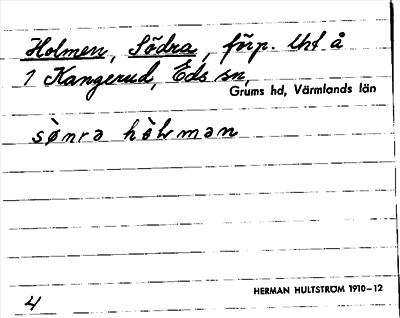 Holmen, Södra, förp. lht å
1 Kangerud, Eds sn,
Grums hd, Värmlands län
sø̀nra hòlman
HERMAN HULTSTRÖM 1910–12
4